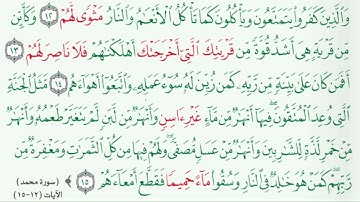 وَالَّذِينَ كَفَرُوا يَتَمَتَّعُونَ وَيَأْكُلُونَ كَمَا تَأْكُلُ الْأَنْعَامُ وَالنَّارُ مَثْوًى لَّهُمْ ﴿١٢﴾ وَكَأَيِّن
مِّن قَرْيَةٍ هِيَ أَشَدُّ قُوَّةً مِّن قَرْيَتِكَ الَّتِي أَخْرَجَتْكَ أَهْلَكْنَاهُمْ فَلَا نَاصِرَ لَهُمْ ﴿١٣﴾
أَفَمَن كَانَ عَلَىٰ بَيِّنَةٍ مِّن رَّبِّهِ كَمَن زُيِّنَ لَهُ سُوءُ عَمَلِهِ وَاتَّبَعُوا أَهْوَاءَهُم ﴿١٤﴾ مَّثَلُ الْجَنَّةِ
الَّتِي وُعِدَ الْمُتَّقُونَ فِيهَا أَنْهَارٌ مِّن مَّاءٍ غَيْرِ آسِنٍ وَأَنْهَارٌ مِّن لَّبَنٍ لَّمْ يَتَغَيَّرْ طَعْمُهُ وَأَنْهَارٌ
مِّنْ خَمْرٍ لَّذَّةٍ لِّلشَّارِبِينَ وَأَنْهَارٌ مِّنْ عَسَلٍ مُّصَفًّى وَلَهُمْ فِيهَا مِن كُلِّ الثَّمَرَاتِ وَمَغْفِرَةٌ مِّن
رَّبِّهِمْ كَمَنْ هُوَ خَالِدٌ فِي النَّارِ وَسُقُوا مَاءً حَمِيمًا فَقَطَّعَ أَمْعَاءَهُمْ ﴿١٥﴾ ﴾ (سورة محمد)
الآيات (١٢-١٥)